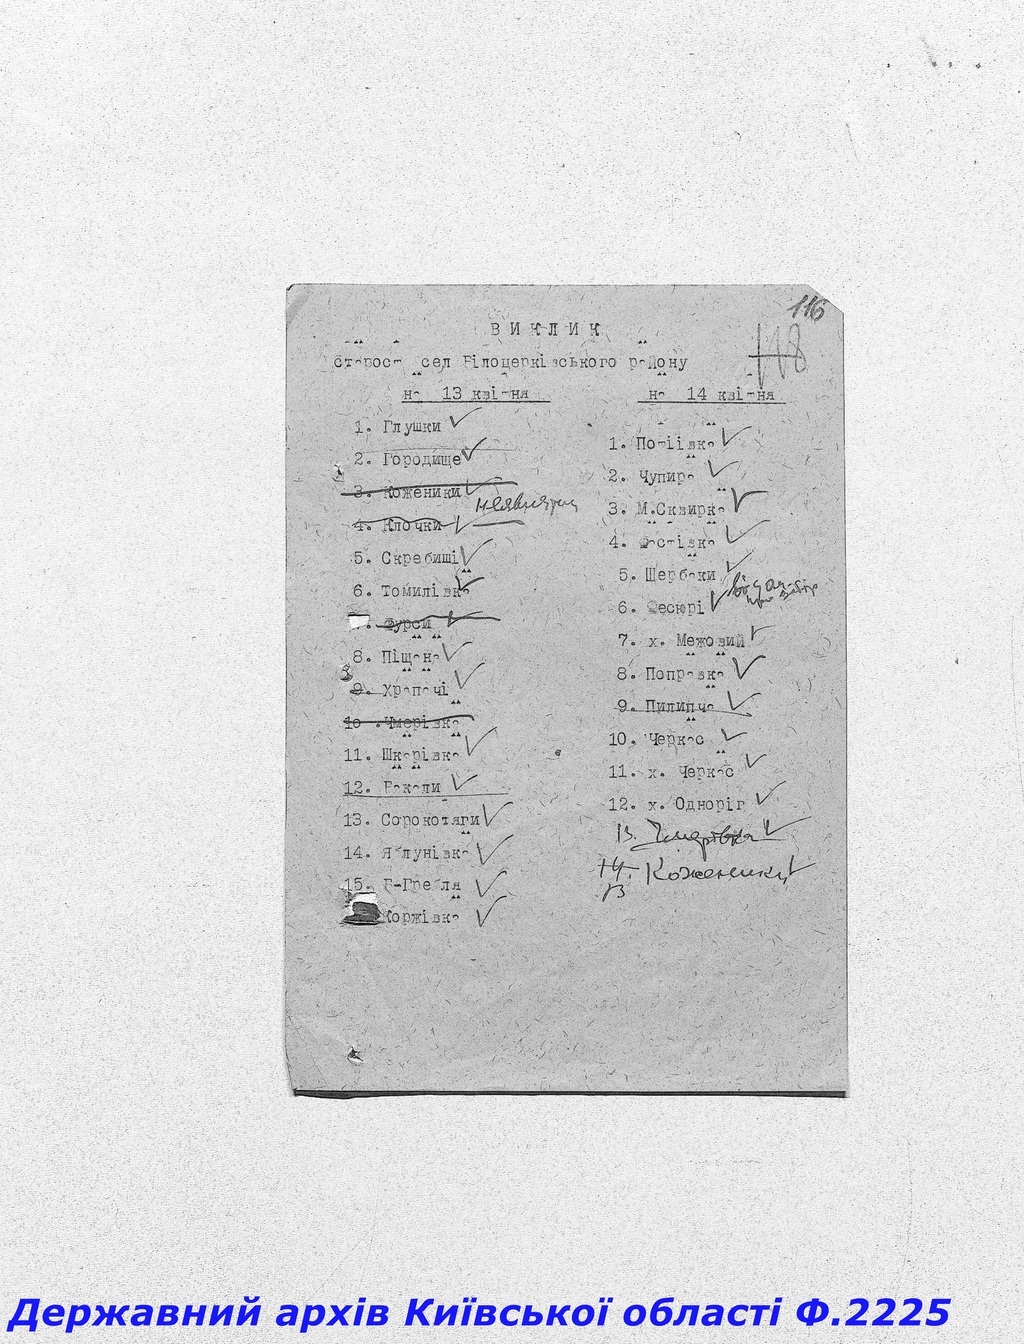 116
118
ВИКЛИК
старост сел Білоцерківського району
на 13 квітня
1. Глушки
2. Городище
3. Коженики
4. Клочки
5. Скребиші
6. Томилівка
7. Фурси
8. Піщана
9. Храпачі
10. Чмерівка
11. Шкарівка
12. Бакали
13. Сорокотяги
14. Яблунівка
15. Б-Гребля
Коржівка
на 14 квітня
1. Потіївка
2. Чупира
3. М.Сквирка
4. Фастівка
5. Шербаки
6. Фесюрі
7. х. Межовий
8. Поправка
9. Пилипча
10. Черкас
11. х. Черкас
12. х. Одноріг
13. Чмирівка
14. Коженики
13
Державний архів Київської області Ф.2225